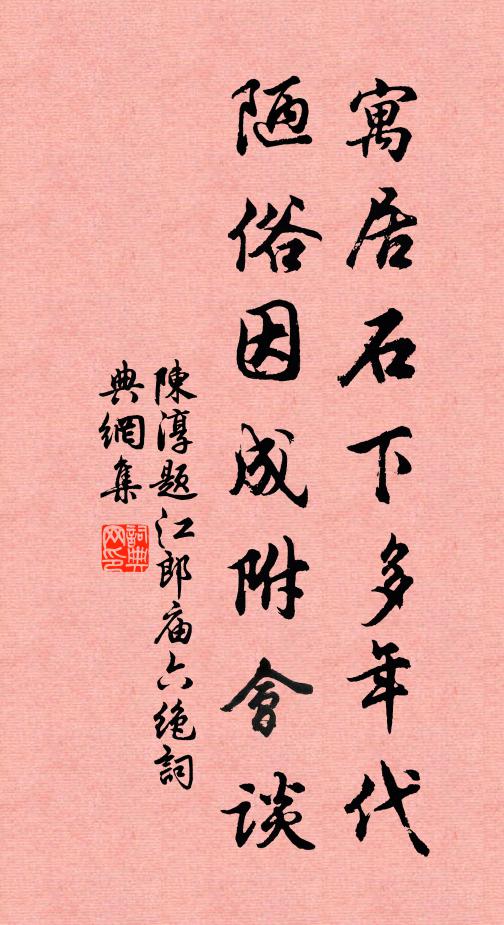 寓居石下多年代
陋俗因成附會谈
陳淳题江郎庙六绝詞
典網集
詞典
网印